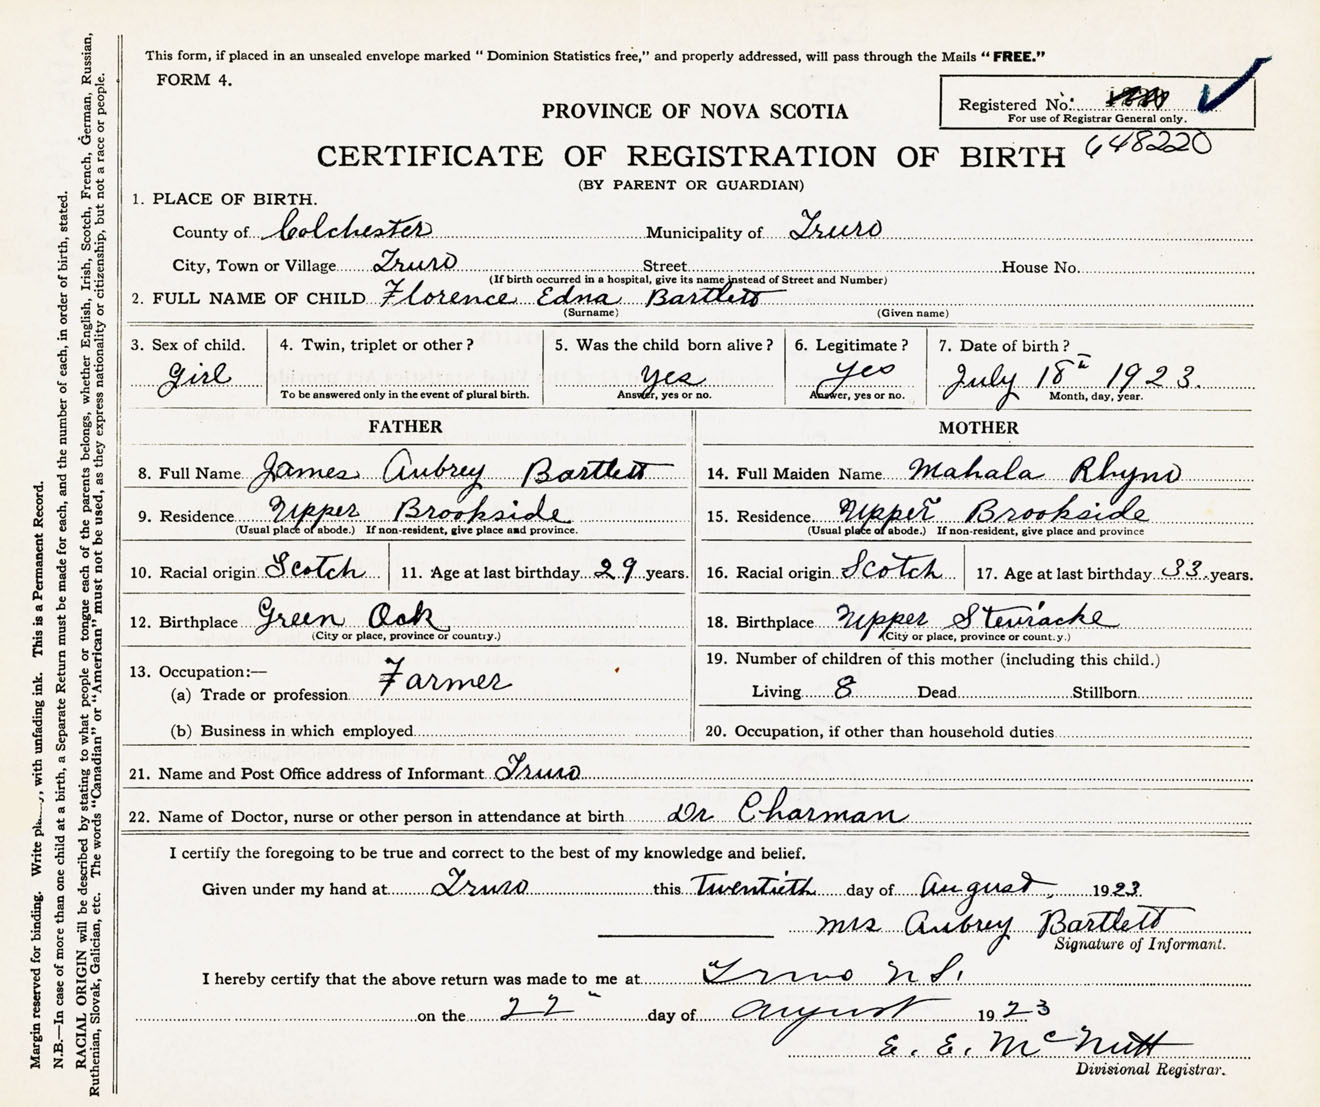 This form, if placed in an unsealed envelope marked “ Dominion Statistics free,” and properly addressed, will pass through the Mails “ FREE.”
FORM 4.
PROVINCE OF NOVA SCOTIA
Registered No.
For use of Registrar General only.
648220
CERTIFICATE OF REGISTRATION OF BIRTH
(BY PARENT OR GUARDIAN)
1. PLACE OF BIRTH.
County of Colchester Municipality of Truro
City, Town or Village Truro Street House No.
(If birth occurred in a hospital, give its name instead of Street and Number)
2. FULL NAME OF CHILD Florence Edna Bartlett
(Surname) (Given name)
3. Sex of child. Girl
4. Twin, triplet or other ?
To be answered only in the event of plural birth.
5. Was the child born alive ? Yes
Answer, yes or no.
6. Legitimate ? Yes
Answer, yes or no.
7. Date of birth ?
July 18th 1923.
Month, day, year.
FATHER
8. Full Name James Aubrey Bartlett
9. Residence Upper Brookside
(Usual place of abode.) If non-resident, give place and province.
10. Racial origin Scotch 11. Age at last birthday 29 years.
12. Birthplace Green Oak
(City or place, province or country.)
13. Occupation:—
(a) Trade or profession Farmer
(b) Business in which employed
MOTHER
14. Full Maiden Name Mahala Rhyno
15. Residence Upper Brookside
(Usual place of abode.) If non-resident, give place and province
16. Racial origin Scotch 17. Age at last birthday 33 years.
18. Birthplace Upper
(City or place, province or count.y.)
19. Number of children of this mother (including this child.)
Living 8 Dead Stillborn
20. Occupation, if other than household duties
21. Name and Post Office address of Informant Truro
22. Name of Doctor, nurse or other person in attendance at birth Dr Charman
I certify the foregoing to be true and correct to the best of my knowledge and belief.
Given under my hand at Truro this Twentieth day of August 1923
Mrs Aubrey Bartlett
Signature of Informant.
I hereby certify that the above return was made to me at Truro N S.
on the 22" day of August 1923
E. E. McNutt
Divisional Registrar.
Margin reserved for binding. Write with unfading ink. This is a Permanent Record.
N.B.—In case of more than one child at a birth, a Separate Return must be made for each, and the number of each, in order of birth, stated.
RACIAL ORIGIN will be described by stating to what people or tongue each of the parents belongs, whether English, Irish, Scotch, French, German, Russian,
Ruthenian, Slovak, Galician, etc. The words “Canadian” or “American” must not be used, as they express nationality or citizenship, but not a race or people.